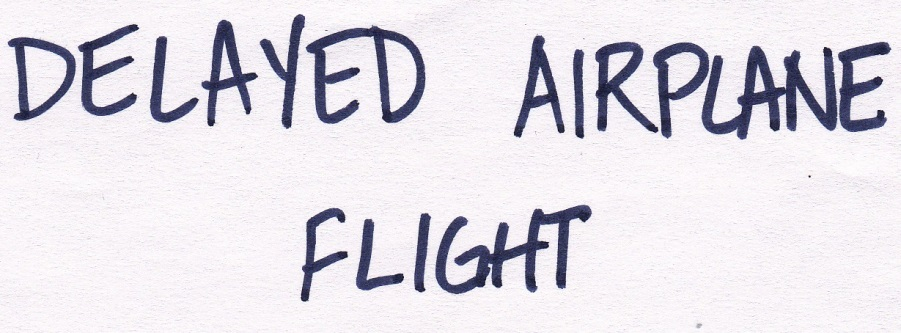 DELAYED AIRPLANE
FLIGHT